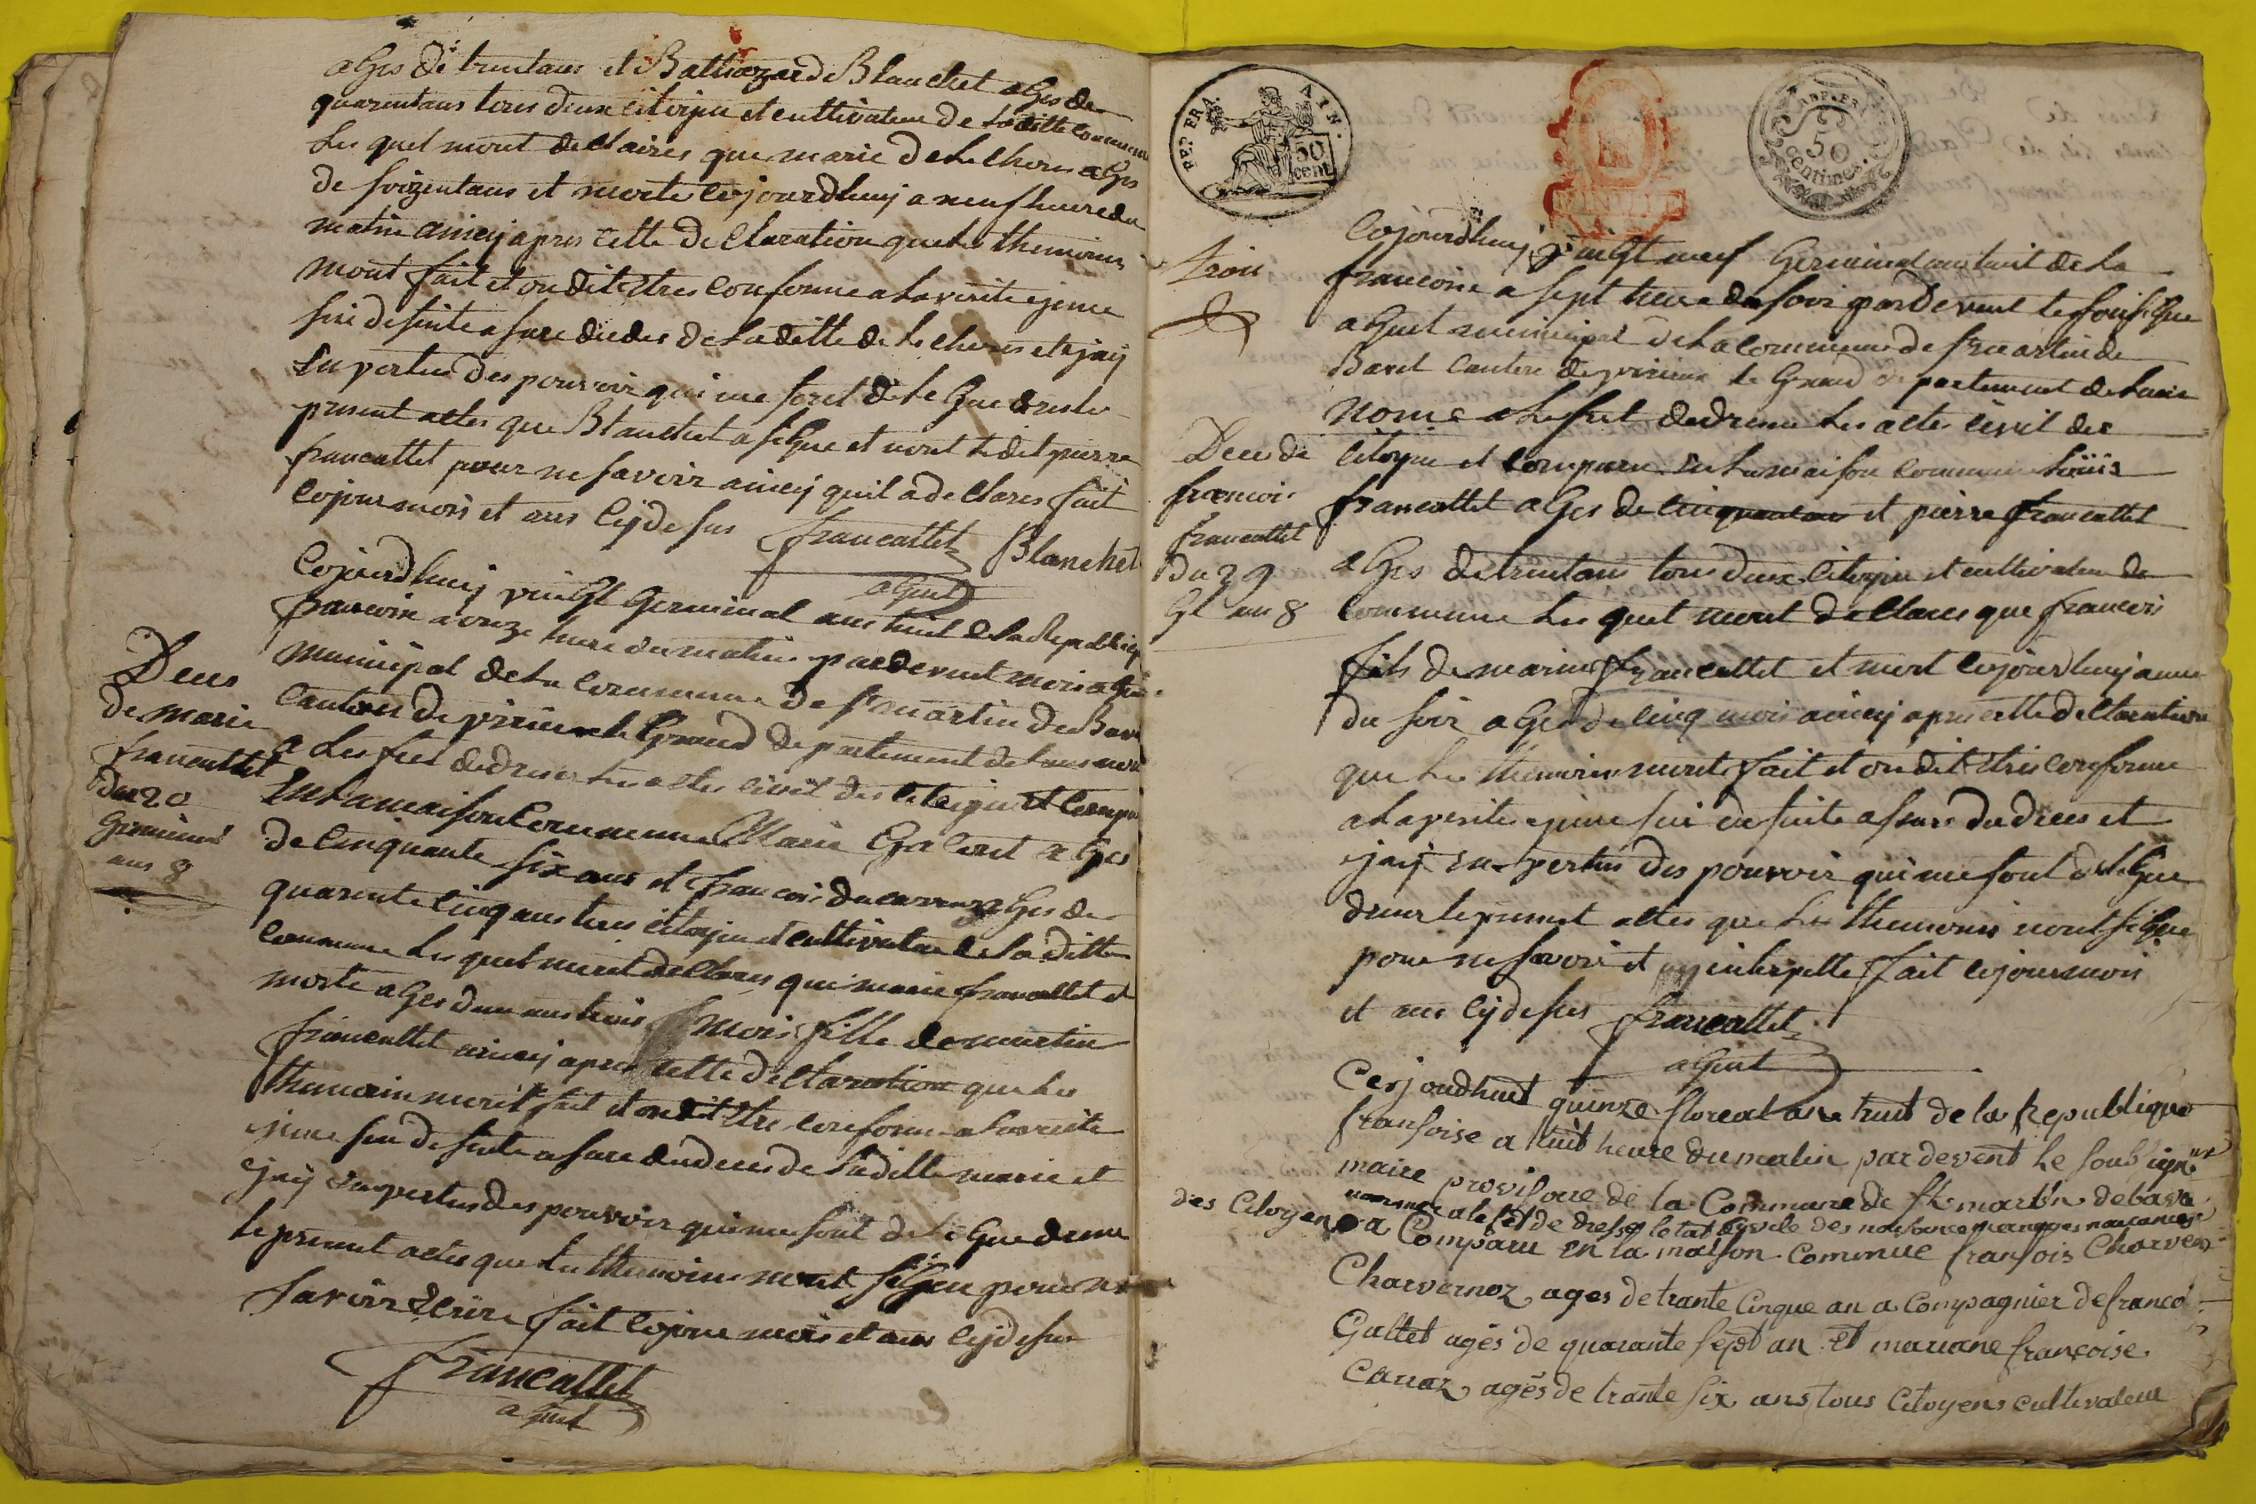 ages de trentans et Balthazard Blanchet ages de
quarentans tous deux citoyen et cultivateur de laditte commune
les quel mont declaires que marie delechons ages
de soizentans et morte cejourdhuy a neuf heure du
matin aincy apres cette declaration que les themoins
mont fait et on dit etres conforme a la verite ejeme
suis desuite asure du des de laditte de lechons et ejaij
en vertue des pouvoir qui me sont delegue dresse
present actes que Blanchet a signe et nont ledit pierre
francallet pour ne savoir aincy quil a declares fait
cejour mois et ans cy desus francallet Blanchet
agent
Cejourdhuij vingt Germinal ans huit de la Republique
francoise a onze heure du matin pardevent moi agent
municipal de la commune de st martin de Bavel
Deces cantons de virieu le Grand departement de lain nomé
de marie a les fect dedreser les actes civil des citoyen et comparu
francallet en la maison commune Marie Galcert ages
du 20 de cinquante six ans et francois ducarroz ages de
Germinal quarente cinq ans tous citoyen et cultivateur de la ditte
ans 8 commune les quel mont declares que marie francallet et
morte ages dun ans trois mois fille de martin
francallet aincy apres cette declaration que les
themoin mont fait et on dit etre conforme a la verite
ejeme sui desuite asure du deces de laditte marie et
ejaij en vertus des pouvoir qui me sont delegue dresse
le present actes que les themoins nont signe pour ne
savoir ecrire fait cejour mois et ans cy desus
francallet
agent
REP. FRA. AIN.
50 cent
REP. FRA.
50 centimes
trois
Cejourdhuij vingt neuf Germinal ans huit de la
francoise a sept heure du soir pardevent le sousigne
agent municipal de la commune de st martin de
Bavel cantons de virieux le Grand departement de lain
nomé a les fect dedreser les actes civil des
Deces de citoyen et comparu en la maison commune loüis
francois francallet ages de cinquantans et pierre francallet
francallet
du 29 ages de trentans tous deux citoyen et cultivateur de
Gl an 8 commune les quel mont declares que francois
fils de marin francallet et mort cejourdhuij a une
du soir ages de cinq mois aincy apres cette declaration
que les themoins mont fait et on dit etres conforme
a la verite ejeme sui desuite asure du deces et
ejaij en vertus des pouvoir qui me sont delegue
dreser le present actes que les themoins nont signe
pour ne savoir et interpelle fait cejour mois
et ans cy desus francallet
agent
Cesjourdhuit quinze floreal ans huit de la Republique
fransoise a huit heure du matin par devent le soubsigne
maire provisoire de la Commune de st martin de bavel
nomme a le fet de dresse letat cyvile des naisance mariages
des Citoyens a Comparu en la maison commune fransois Charven
Charvernoz ages de trante cinque an a compagnier de franco
Gallet agés de quarante sept an et mariane françoise
Carraz agés de trante six ans tous Citoyens cultivateur